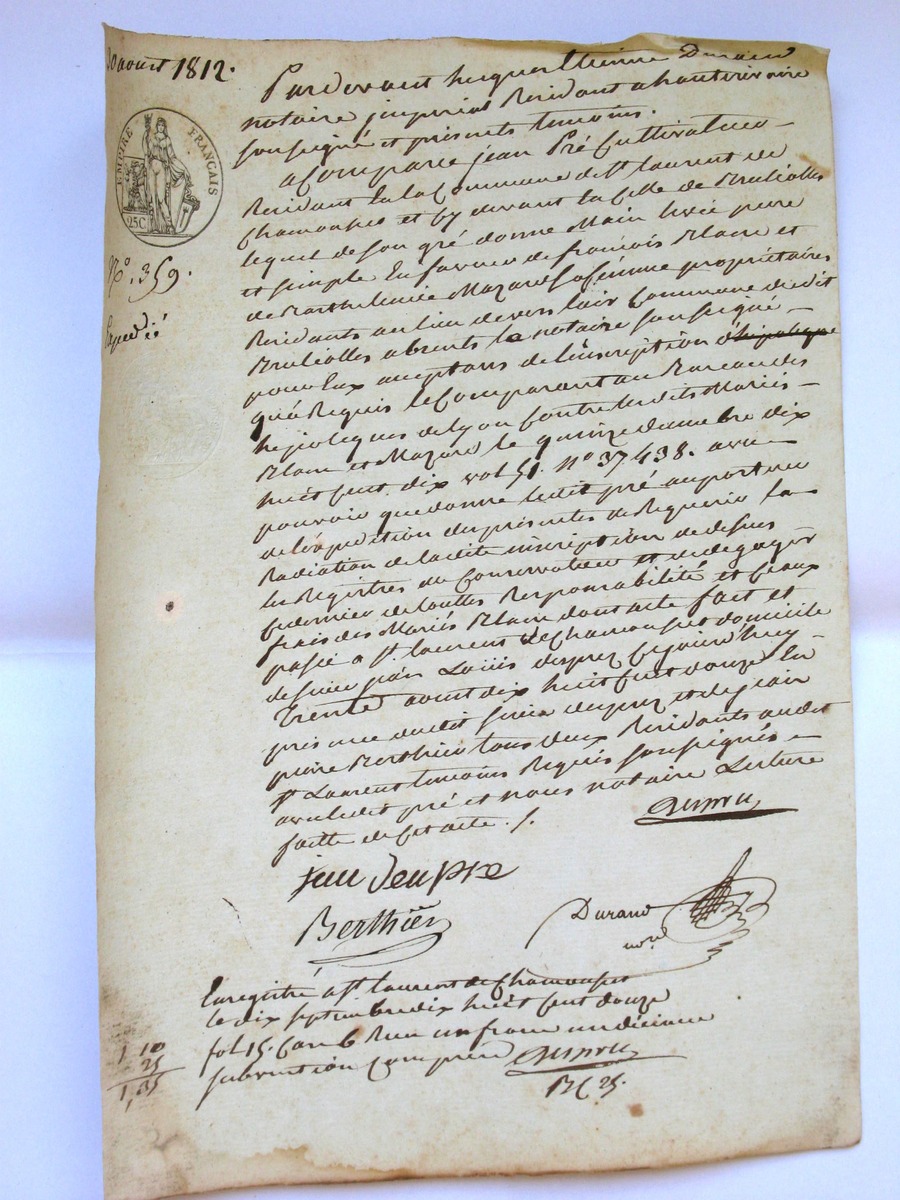 30 aout 1812.
EMPIRE FRANÇAIS
25C
N.o 359
Expedié
Pardevant Jacques Etienne Durand
notaire imperial Residant a hauterivoire
soussigné et présents temoins.
a Comparu jean Pré Cultivateur
Residant en la Commune de St laurent de
Chamousset et cy devant en celle de Brulliolles
lequel de son gré donne Main levée pure
et simple En faveur de françois Blanc et
de Barthelemie Mazard sa femme propriétaires
Residants au lieu de commune dudit
Brulliolles absents le notaire soussigné
pour Eux acceptant de l'inscription d'hipoteque
qu'a Requis le Comparant au Bureau des
hipoteques de Lyon Contre lesdits Mariés
Blanc et Mazard le quinze dix
huit cent dix vol 51. n.o 37438. avec
pouvoir que donne ledit pré au porteur
de l'expedition des presentes de Requerir la
Radiation de ladite inscription de dessus
les Registres du Conservateur et de degager
ce dernier de touttes Responsabilité et ce aux
frais des Mariés Blanc dont acte fait et
passé a St laurent de Chamousset domicile
de sieur Louis desprez Cejourd'huy
Trente aout dix huit cent douze En
presence dudit sieur desprez et de jean
pierre Berthier tous deux Residants audit
St Laurent temoins Requis soussignés
avec ledit pré et nous notaire Lecture
faitte de cet acte ./.
jean
Berthier
Durand
nore
Enregistré a St laurent de Chamousset
le dix septembre dix huit cent douze
fol 15. Case 6 Recu un franc un décime
subvention Comprise
1 10
25
1,35
25.